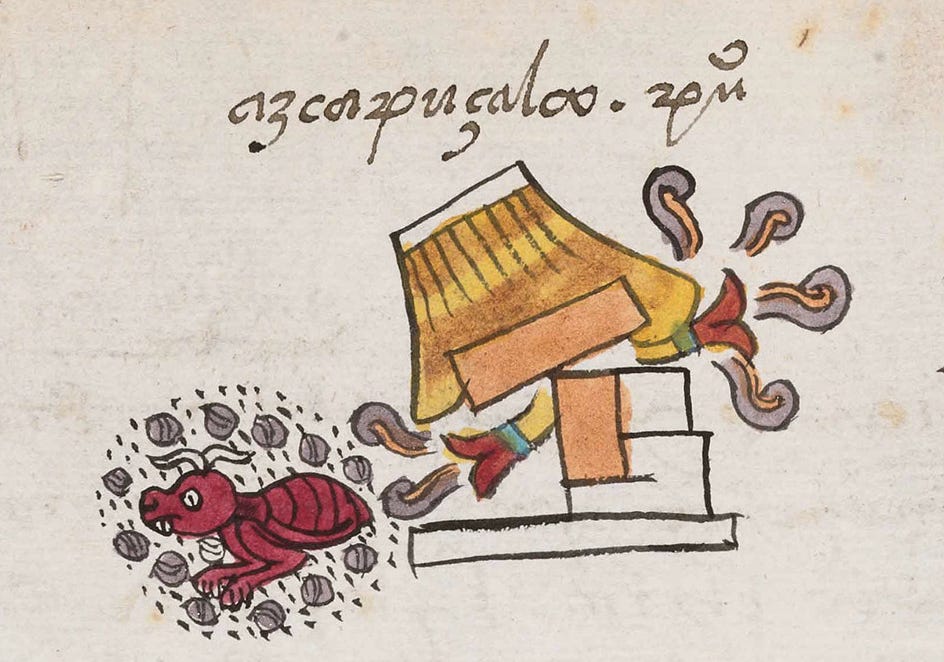 azcapuçalco. puº